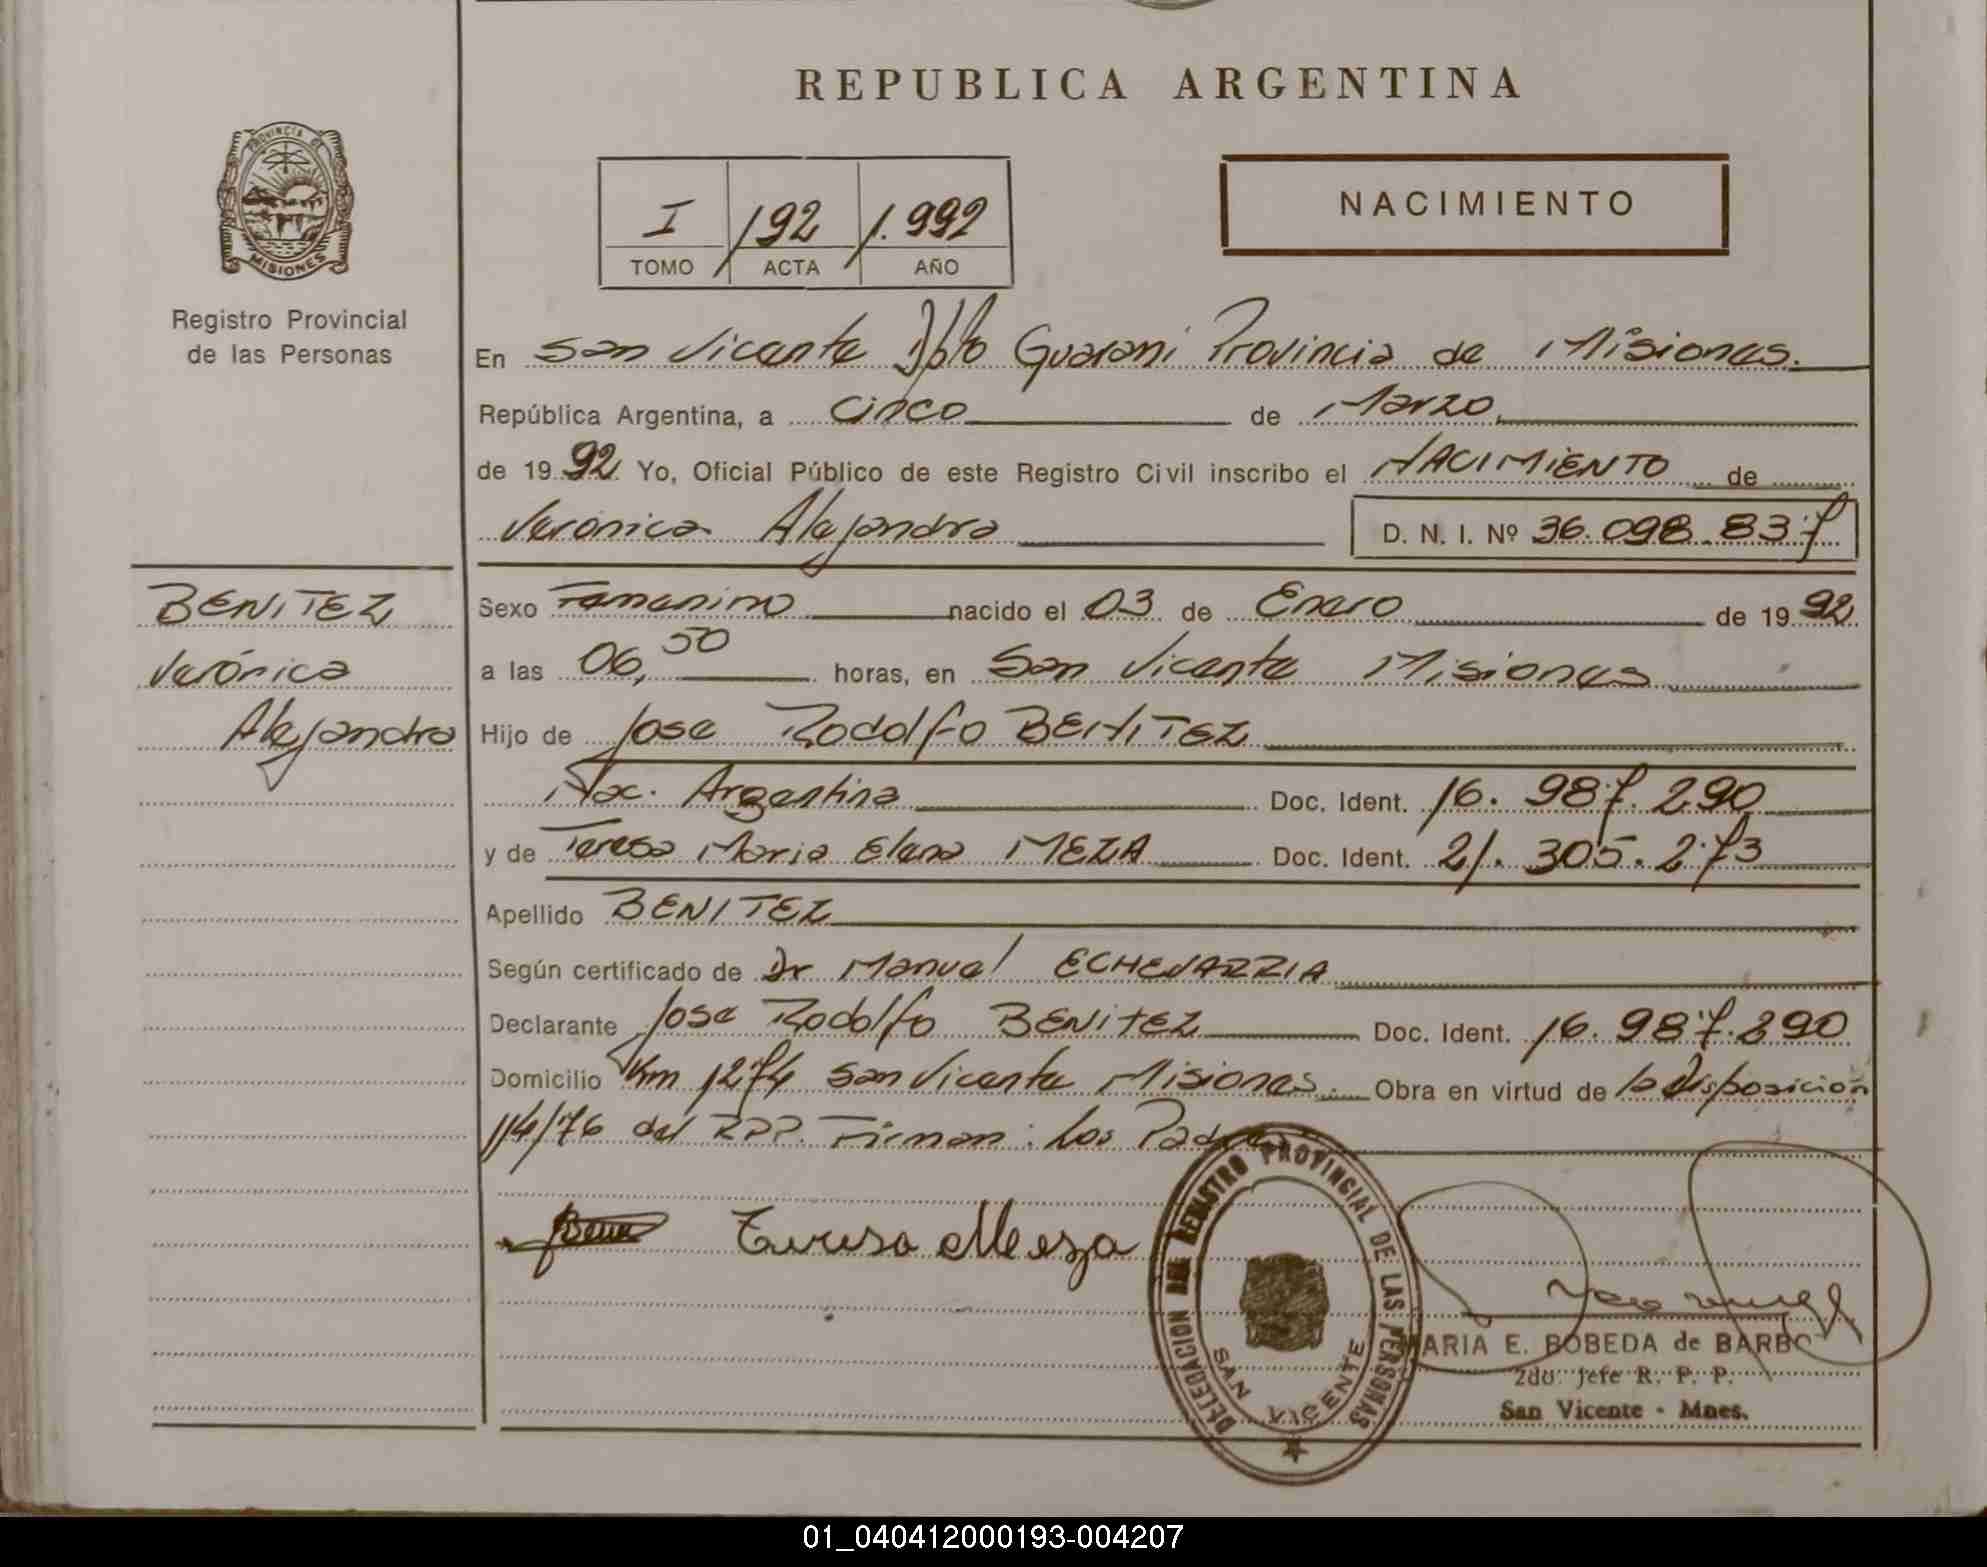 REPUBLICA ARGENTINA
PROVINCIA DE MISIONES
Registro Provincial
de las Personas
I 192 1.992
TOMO ACTA AÑO
NACIMIENTO
En San Vicente Dpto Guaraní Provincia de Misiones.
República Argentina, a Cinco de Marzo
de 1992 Yo, Oficial Público de este Registro Civil inscribo el NACIMIENTO de
Verónica Alejandra D. N. I. Nº 36.098.837
BENITEZ
Verónica
Alejandra
Sexo Femenino nacido el 03 de Enero de 1992
a las 06,50 horas, en San Vicente Misiones
Hijo de Jose Rodolfo BENITEZ
Nac. Argentina Doc. Ident. 16. 987. 290
y de Teresa Maria Elena MEZA Doc. Ident. 21. 305. 273
Apellido BENITEZ
Según certificado de Dr Manuel ECHEVARRIA
Declarante Jose Rodolfo BENITEZ Doc. Ident. 16. 987. 290
Domicilio Km 1274 San Vicente Misiones. Obra en virtud de la Disposición
114/76 del RPP. Firman: Los Padres
Teresa Meza
DELEGACION DEL REGISTRO PROVINCIAL DE LAS PERSONAS
SAN VICENTE
MARIA E. BOBEDA de BARBO
2do. Jefe R. P. P.
San Vicente - Mnes.
01_040412000193-004207